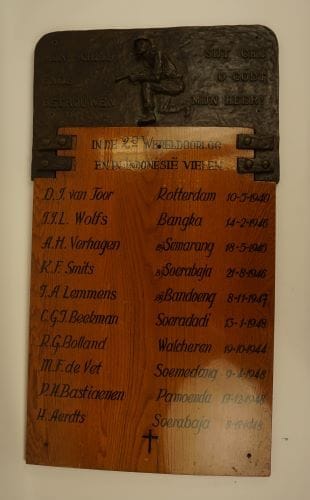 MIJN SCHILT SIJT GHIJ
ENDE O GODT
BETROUWEN MIJN HEER!
IN DE 2E WERELDOORLOG
EN IN INDONESIË VIELEN
D.J. van Toor Rotterdam 10-5-1940
J.J.L. Wolfs Bangka 14-2-1946
A.H. Verhagen bij Semarang 18-5-1946
K.F. Smits bij Soerabaja 21-8-1946
J.A. Lemmens bij Bandoeng 8-11-1947
C.G.J. Beekman Soeradadi 13-1-1948
R.G. Bolland Walcheren 19-10-1944
M.F. de Vet Soemedang 9-4-1948
P.H. Bastiaenen Pamoenda 19-12-1948
H. Aerdts Soerabaja